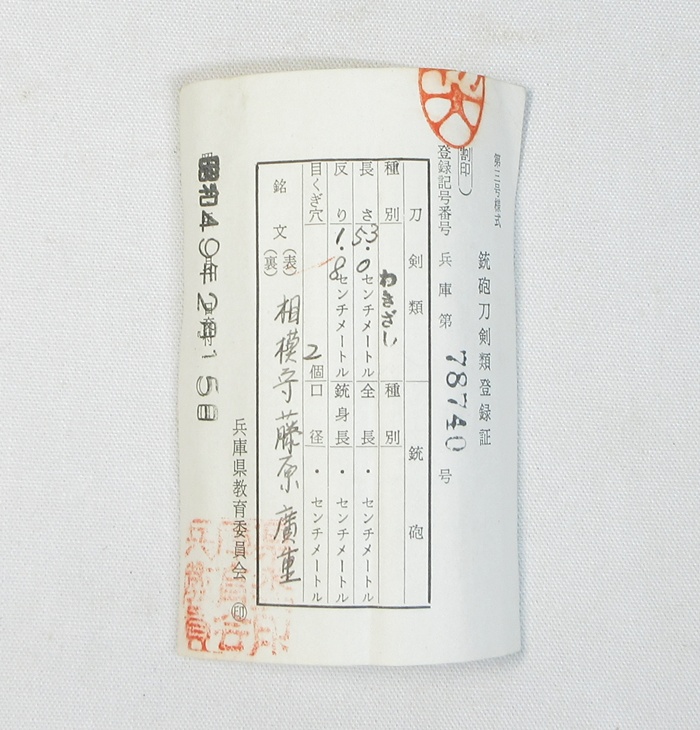 第三号様式
銃砲刀剣類登録証
(割印)
登録記号番号 兵庫第 78740 号
刀剣類 銃砲
種別 わきざし 種別
長さ 53.0センチメートル 全長 ・ センチメートル
反り 1.8センチメートル 銃身長 ・ センチメートル
目くぎ穴 2個 口径 ・ センチメートル
銘文 (表) 相模守藤原廣重
(裏)
兵庫県教育委員会 ㊞
昭和49年2月15日